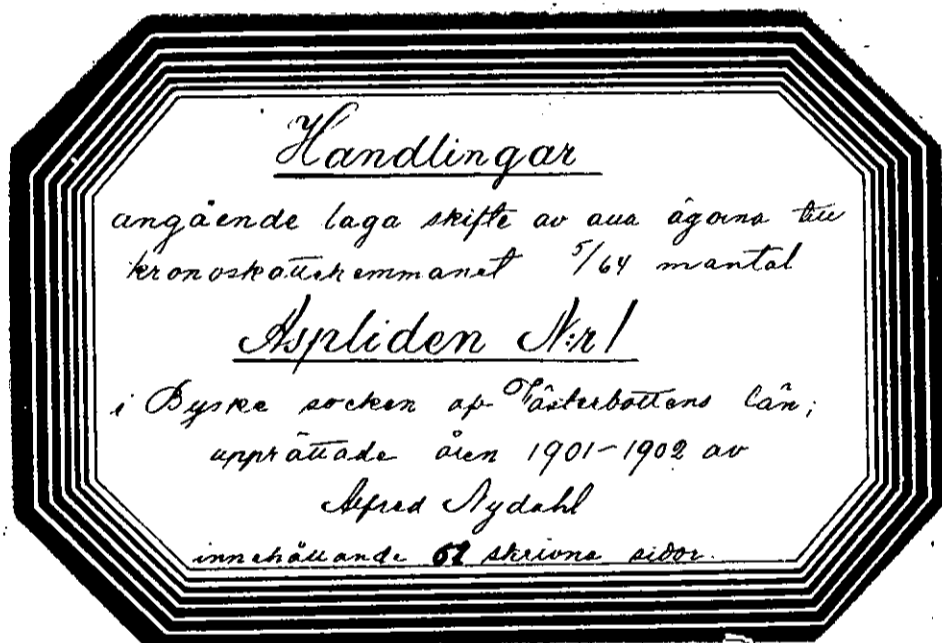 Handlingar
angående laga skifte av alla ägorna till
kronoskattehemmanet 5/64 mantal
Aspliden N:r 1
i Byske socken af Västerbottens län;
upprättade åren 1901-1902 av
Alfred Nydahl
innehållande skrivna sidor.